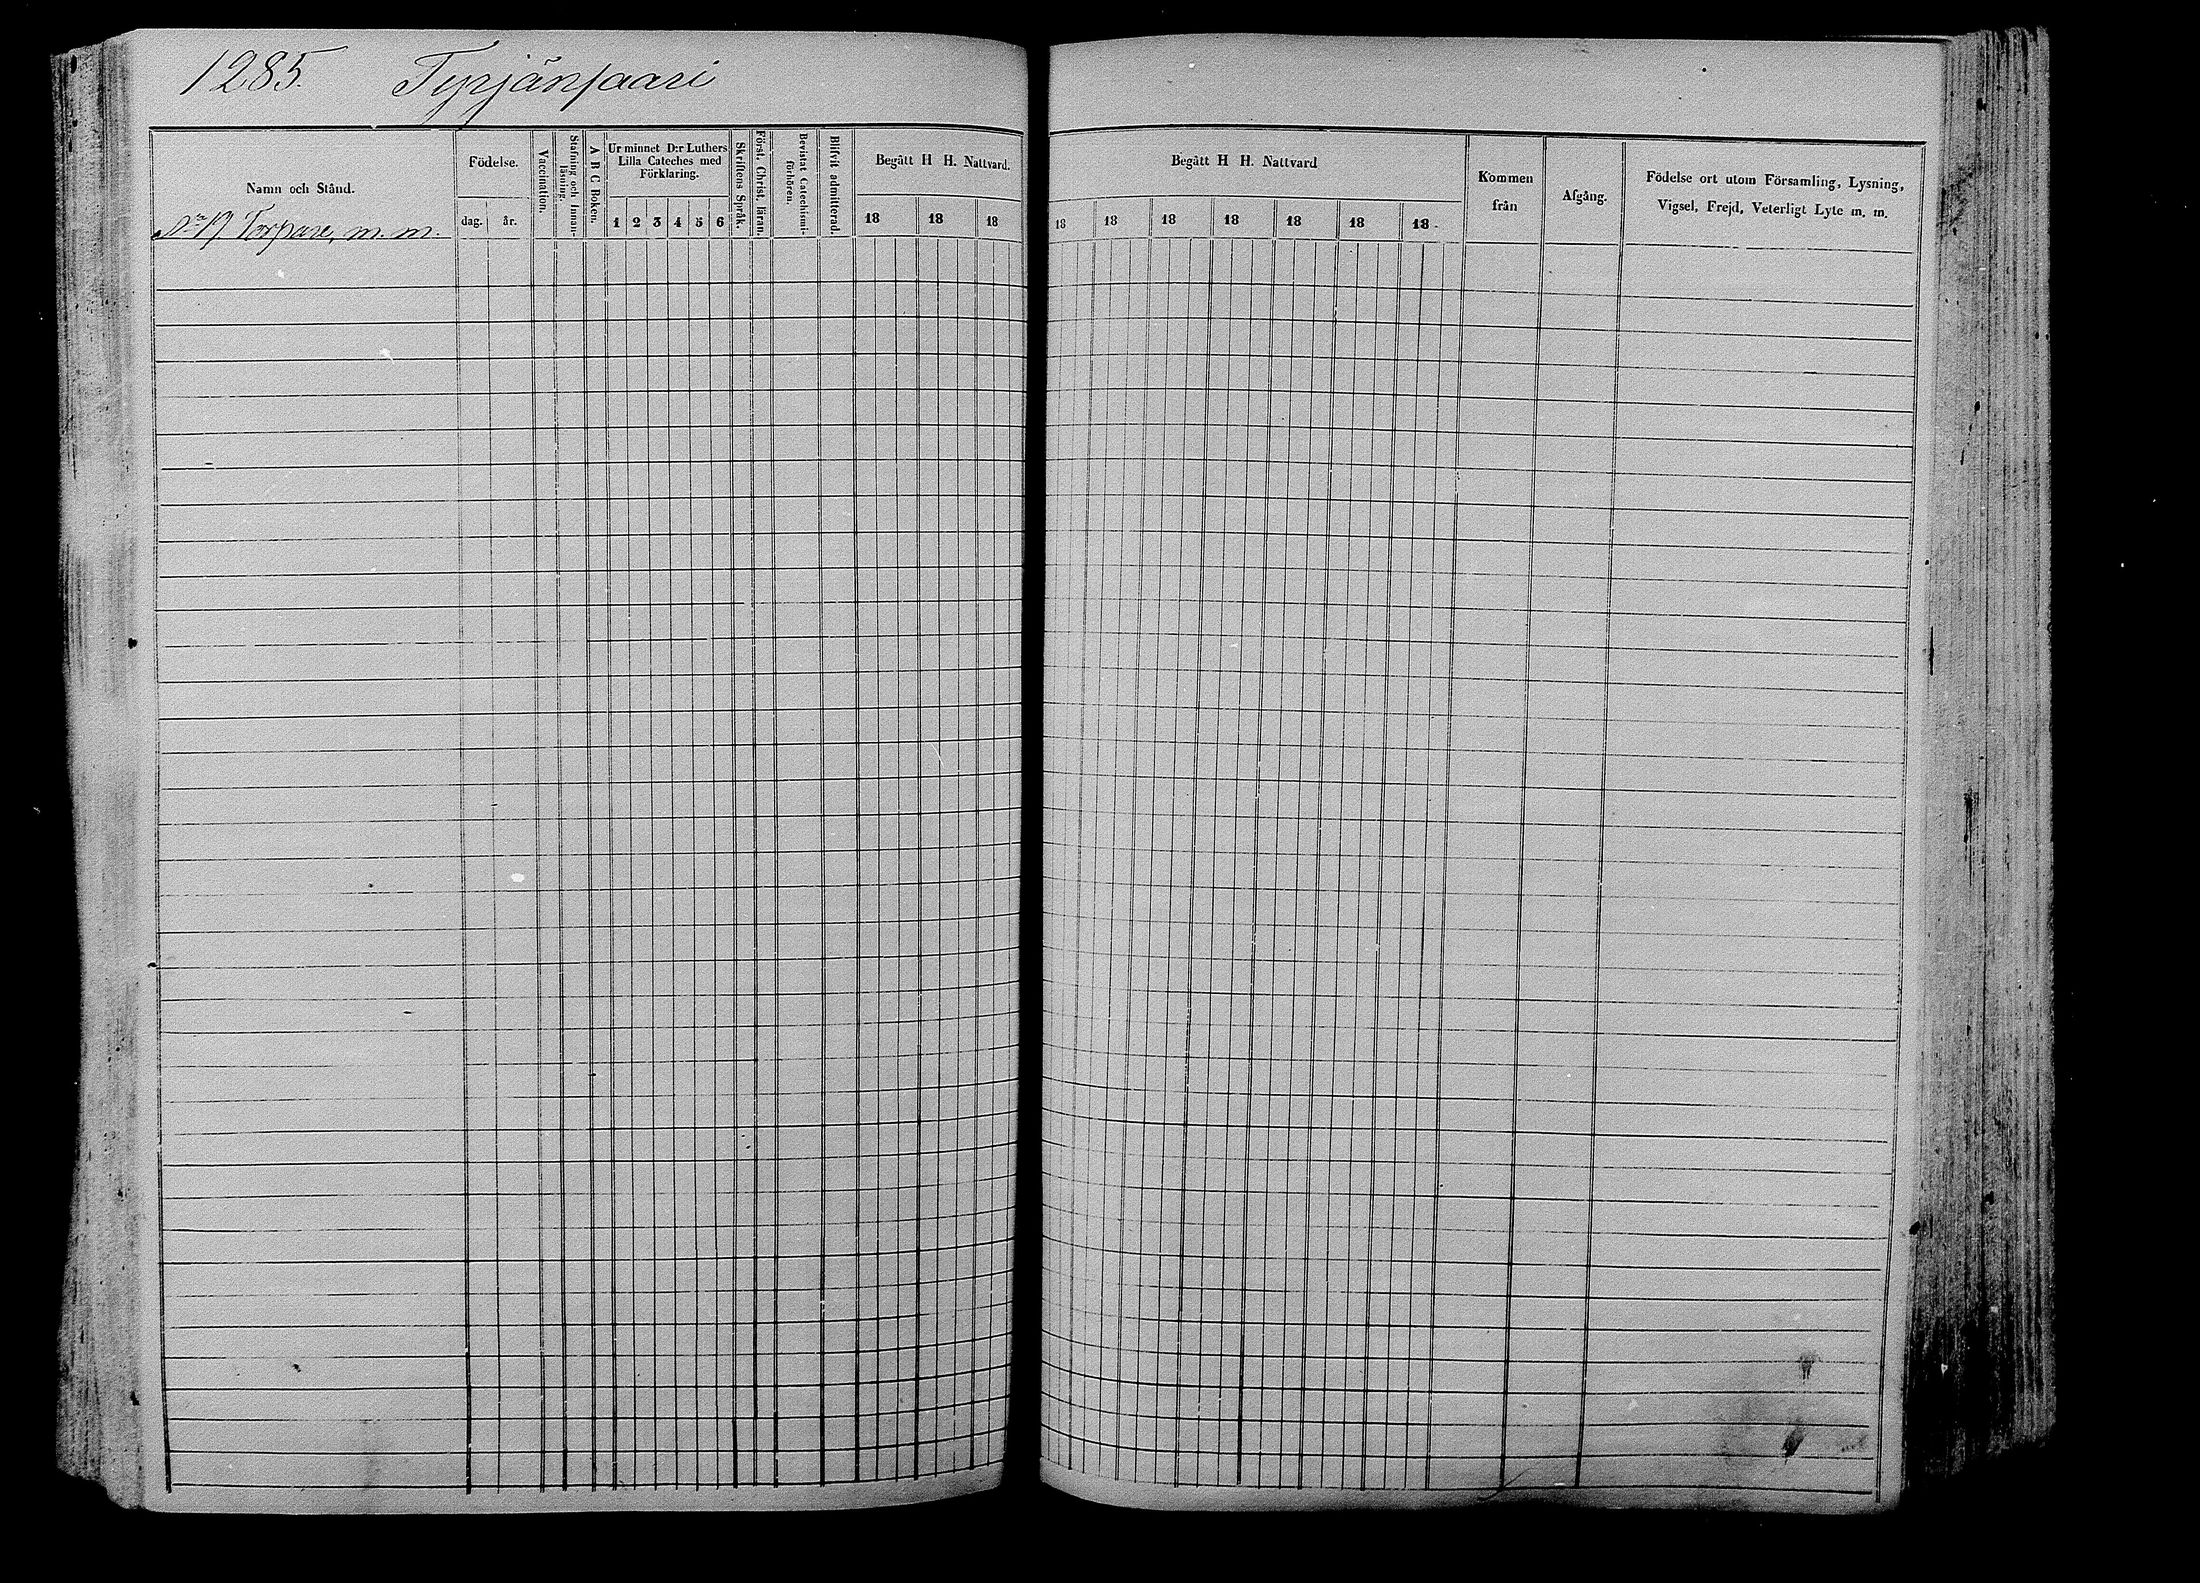 1285. Tyrjänsaari
Namn och Stånd.
Torpare, m. m.
Födelse.
dag. år.
Vaccination.
Stafning och Innan-
läsning.
A B C Boken.
Ur minnet D:r Luthers
Lilla Cateches med
Förklaring.
1 2 3 4 5 6
Skriftens Språk.
Först. Christ. läran.
Bevistat Catechismi-
förhören.
Blifvit admitterad.
Begått H H. Nattvard.
18 18 18
Begått H H. Nattvard
18 18 18 18 18 18 18
Kommen
från
Afgång.
Födelse ort utom Församling, Lysning,
Vigsel, Frejd, Veterligt Lyte m. m.